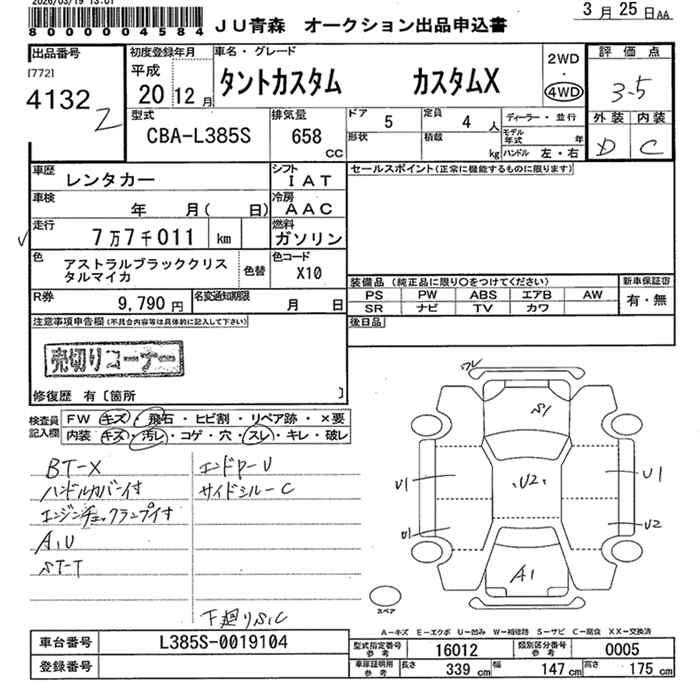 2026/03/19 13:01
80000004584
JU青森 オークション出品申込書
3月25日AA
出品番号
[772]
4132
Z
初度登録年月
平成
20 12月
車名・グレード
タントカスタム カスタムX
2WD
・
4WD
評価点
3.5
外装 内装
D C
型式
CBA-L385S
排気量
658
CC
ドア
5
形状
定員
4人
積載
kg
ディーラー・並行
モデル年式 年
ハンドル 左・右
車歴
レンタカー
シフト
IAT
車検
年 月( 日)
冷房
AAC
走行
7万7千011 km
燃料
ガソリン
色
アストラルブラッククリス
タルマイカ
色替
色コード
X10
R券
9,790円
名変通知期限
月 日
セールスポイント(正常に機能するものに限ります)
装備品 (純正品に限り○をつけてください)
PS PW ABS エアB AW
SR ナビ TV カワ
新車保証書
有・無
後日品
注意事項申告欄(不具合内容等は具体的に記入して下さい)
売切りコーナー
修復歴 有〔箇所 〕
検査員
記入欄
FW キズ・飛石・ヒビ割・リペア跡・×要
内装 キズ・汚レ・コゲ・穴・スレ・キレ・破レ
BT-X
ハンドルカバー付
エンジンチェックランプ付
A,U
ST-T
エンドP-U
サイドシル-C
下廻りS,C
ワレ
S1
U2
U1
U1
U1
U2
A1
スペア
A-キズ E-エクボ U-凹み W-補修跡 S-サビ C-腐食 XX-交換済
車台番号
L385S-0019104
登録番号
型式指定番号
参考
16012
類別区分番号
参考
0005
車庫証明用
参考
長さ 339cm
幅 147cm
高さ 175cm